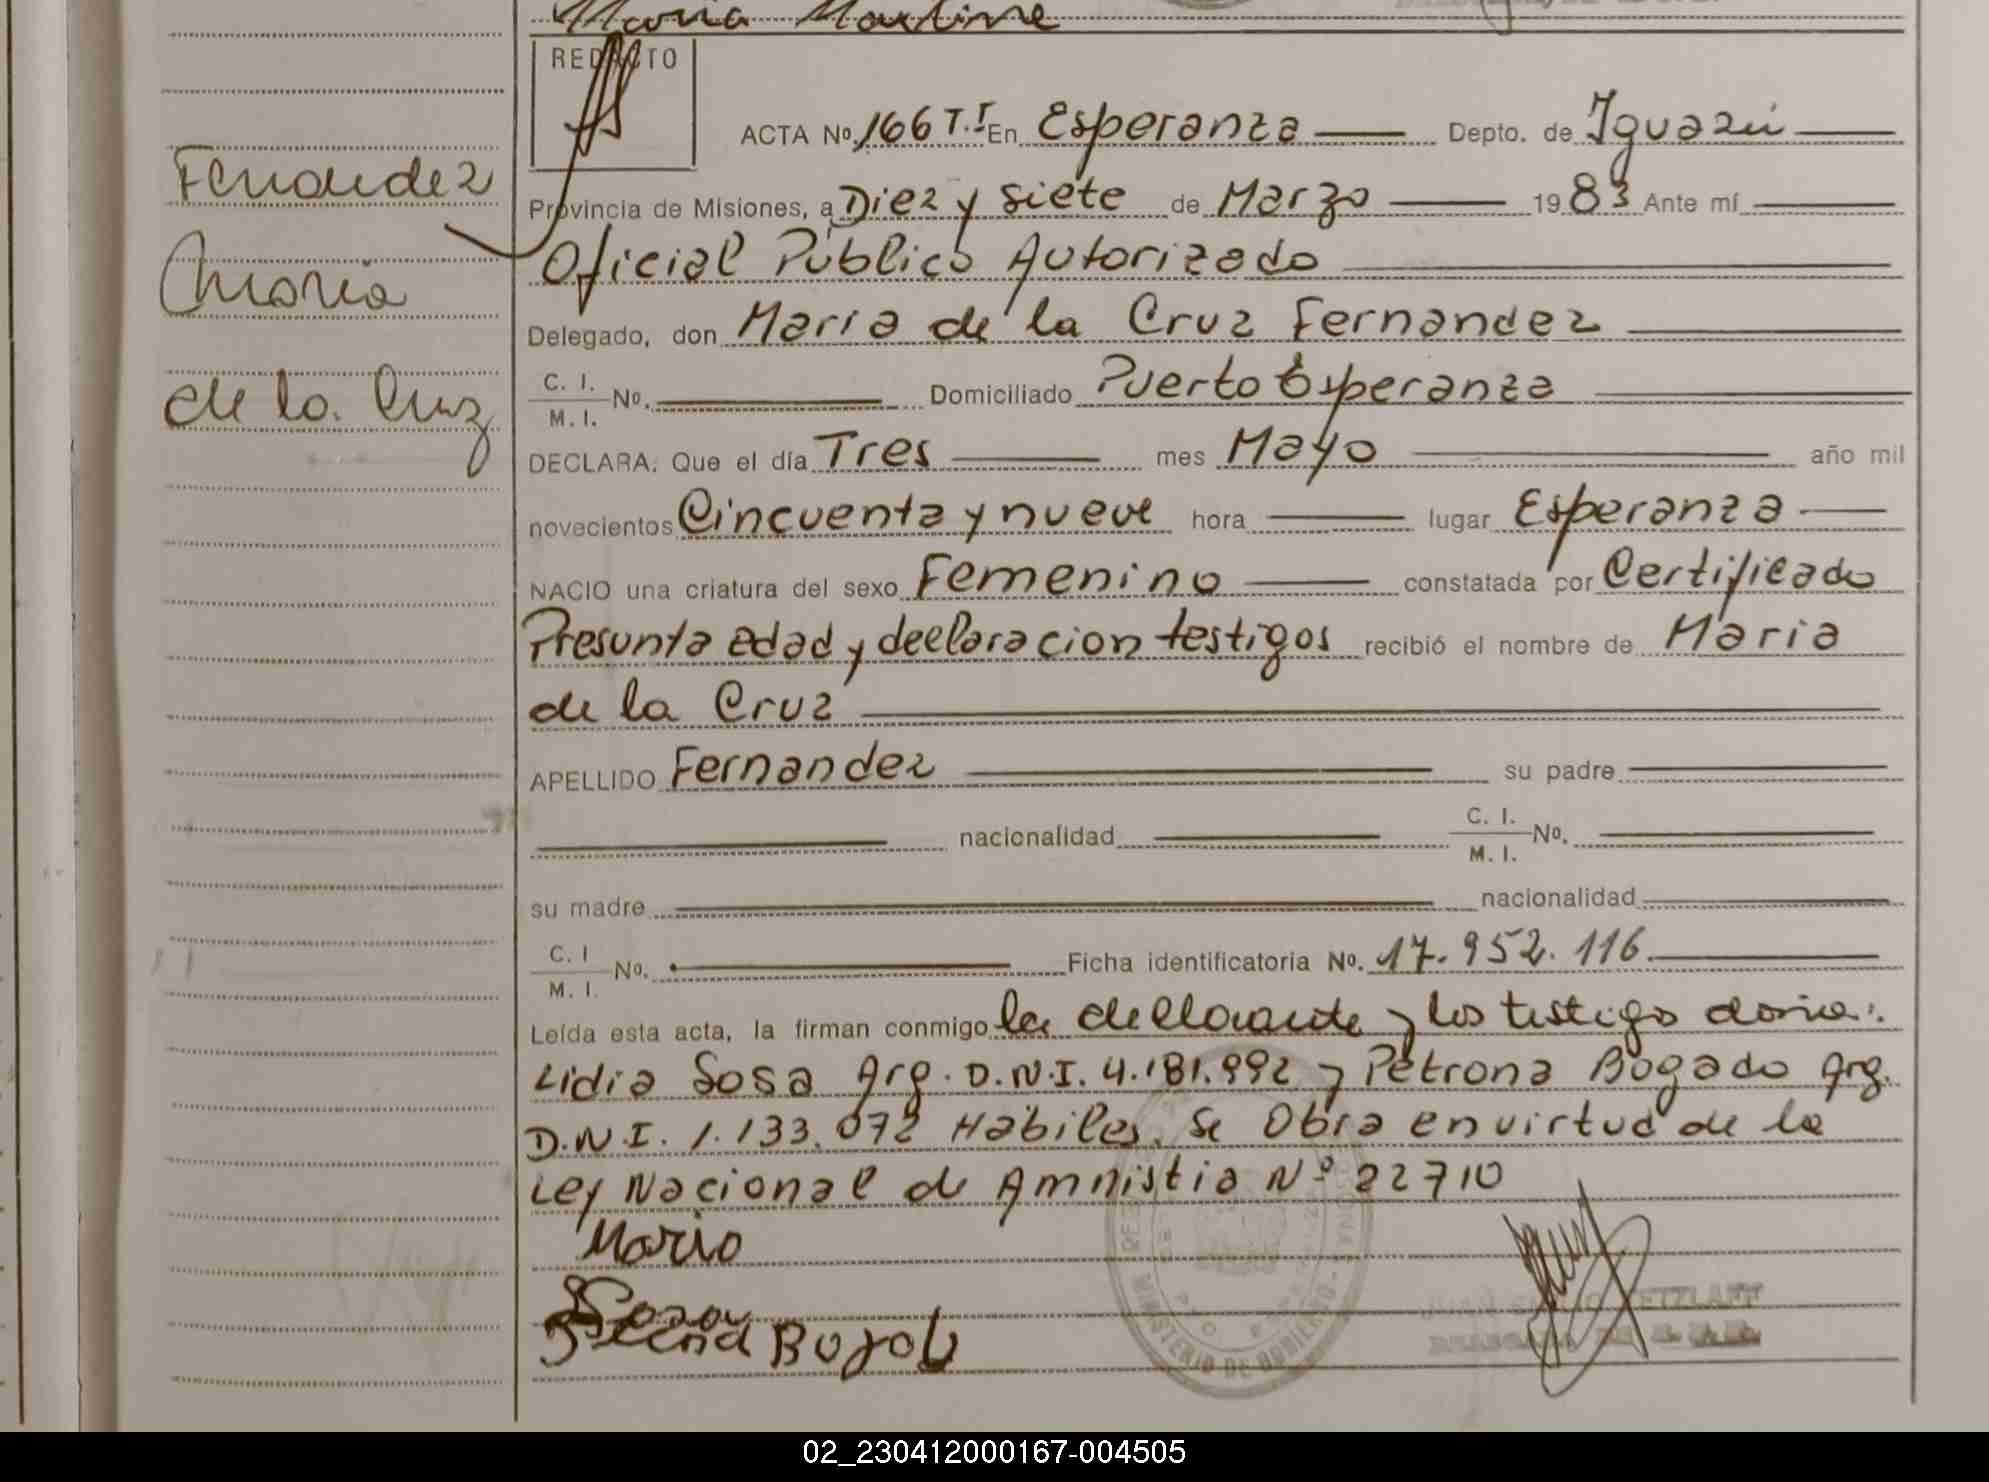 Maria Martine
REDACTO
ACTA Nº 166 T.I En Esperanza Depto. de Iguazú
Fernandez
Provincia de Misiones, a Diez y siete de Marzo 1983 Ante mí
Oficial Público Autorizado
Maria
Delegado, don Maria de la Cruz Fernandez
de la Cruz
C. I.
M. I. Nº. Domiciliado Puerto Esperanza
DECLARA: Que el día Tres mes Mayo año mil
novecientos Cincuenta y nueve hora lugar Esperanza
NACIO una criatura del sexo Femenino constatada por Certificado
Presunta edad y declaracion testigos recibió el nombre de Maria
de la Cruz
APELLIDO Fernandez su padre
nacionalidad C. I.
M. I. Nº.
su madre nacionalidad
C. I
M. I. Nº. Ficha identificatoria Nº. 17.952.116
Leída esta acta, la firman conmigo la declarante y los testigo
Lidia Sosa Arg. D.N.I. 4.181.992 y Petrona Bogado Arg.
D.N.I. 1.133.072 Habiles. Se Obra en virtud de la
Ley Nacional de Amnistia Nº 22710
Maria
MINISTERIO DE GOBIERNO
02_230412000167-004505